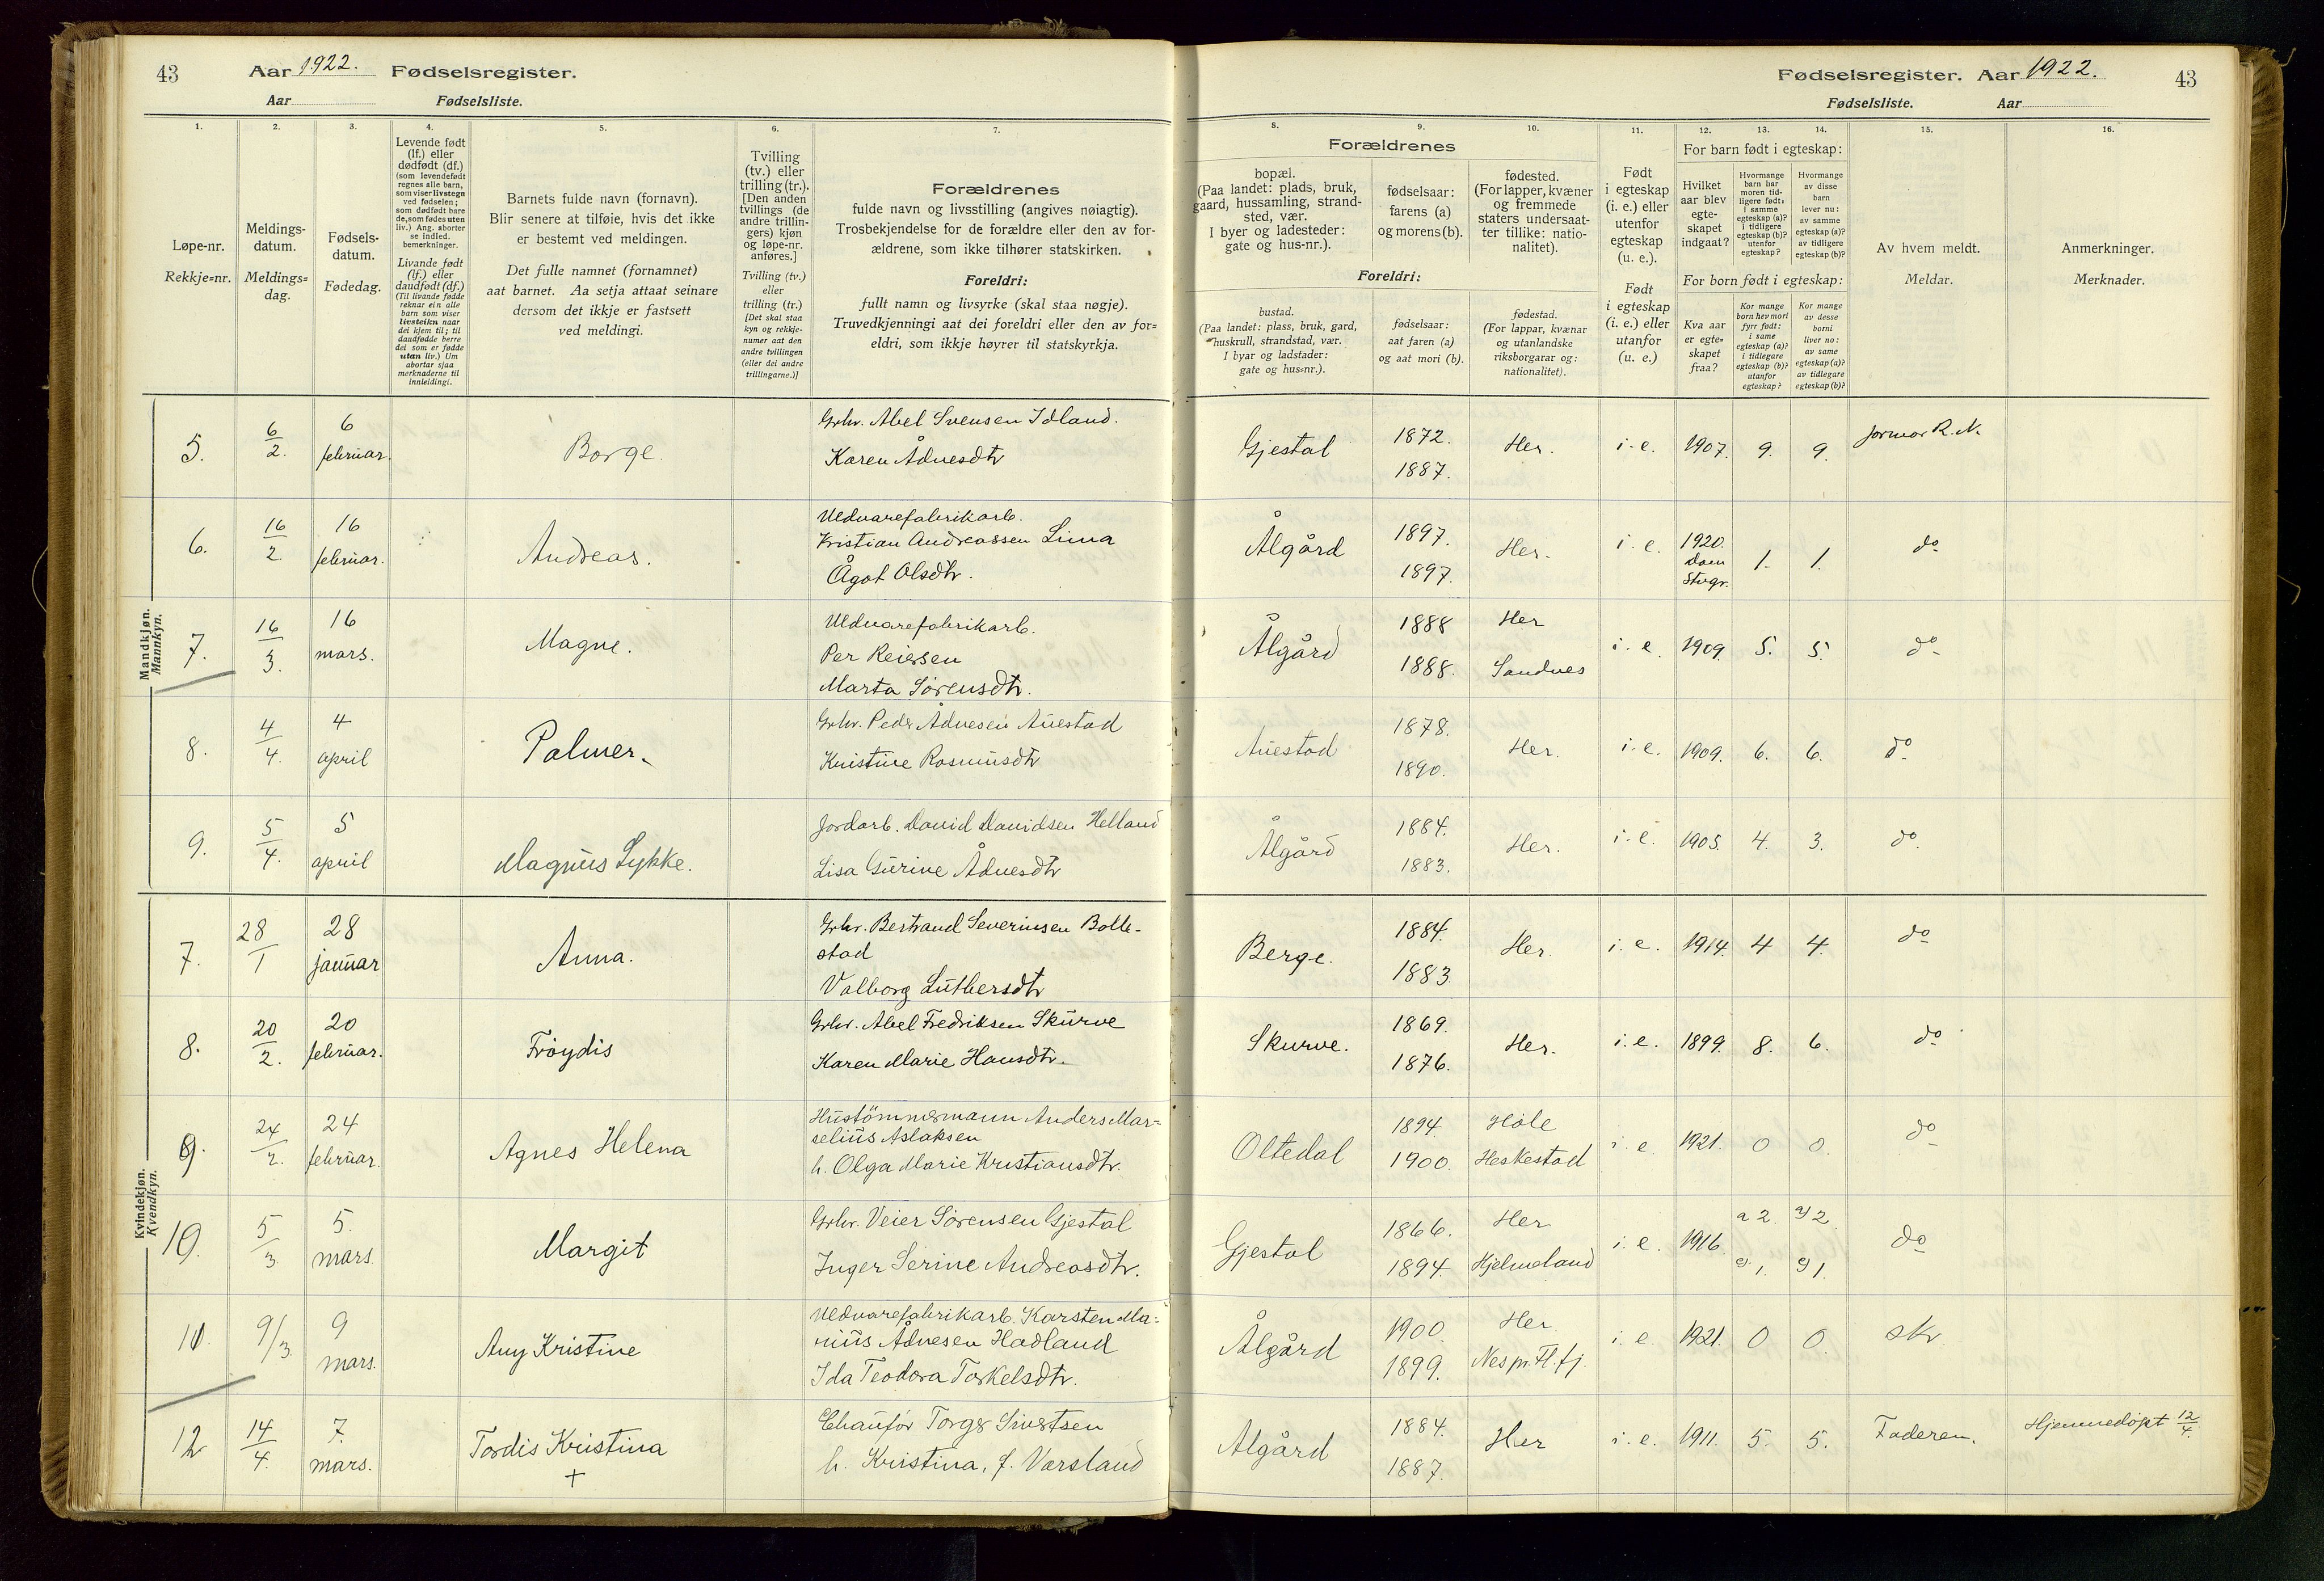 43 Aar 1922. Fødselsregister.
Aar Fødselsliste.
Fødselsregister. Aar 1922. 43
Fødselsliste. Aar
1. 2. 3. 4. 5. 6. 7. 8. 9. 10. 11. 12. 13. 14. 15. 16.
Løpe-nr.
Rekkje=nr.
Meldings-
datum.
Meldings=
dag.
Fødsels-
datum.
Fødedag.
Levende født
(lf.) eller
dødfødt (df.)
(som levendefødt
regnes alle barn,
som viser livstegn
ved fødselen;
som dødfødt bare
de, som fødes uten
liv.) Ang. aborter
se indled.
bemerkninger.
Livande født
(lf.) eller
daudfødt (df.)
(Til livande fødde
reknar ein alle
barn som viser
livsteikn naar
dei kjem til; til
daudfødde berre
dei som er fødde
utan liv.) Um
abortar sjaa
merknaderne til
innleidingi.
Barnets fulde navn (fornavn).
Blir senere at tilføie, hvis det ikke
er bestemt ved meldingen.
Det fulle namnet (fornamnet)
aat barnet. Aa setja attaat seinare
dersom det ikkje er fastsett
ved meldingi.
Tvilling
(tv.) eller
trilling (tr.).
[Den anden
tvillings (de
andre trillin-
gers) kjøn
og løpe-nr.
anføres.]
Tvilling (tv.)
eller
trilling (tr.)
[Det skal staa
kyn og rekkje-
numer aat den
andre tvillingen
(eller dei andre
trillingarne.)]
Forældrenes
fulde navn og livsstilling (angives nøiagtig).
Trosbekjendelse for de forældre eller den av for-
ældrene, som ikke tilhører statskirken.
Foreldri:
fullt namn og livsyrke (skal staa nøgje).
Truvedkjenningi aat dei foreldri eller den av for=
eldri, som ikkje høyrer til statskyrkja.
Forældrenes
bopæl.
(Paa landet: plads, bruk,
gaard, hussamling, strand-
sted, vær.
I byer og ladesteder:
gate og hus-nr.).
fødselsaar:
farens (a)
og morens (b).
fødested.
(For lapper, kvæner
og fremmede
staters undersaat-
ter tillike: natio-
nalitet).
Foreldri:
bustad.
(Paa landet: plass, bruk, gard,
huskrull, strandstad, vær.
I byar og ladstader:
gate og hus=nr.).
fødselsaar:
aat faren (a)
og aat mori (b).
fødestad.
(For lappar, kvænar
og utanlandske
riksborgarar og:
nationalitet).
Født
i egteskap
(i. e.) eller
utenfor
egteskap
(u. e.).
Født
i egteskap
(i. e.) eller
utanfor
(u. e.)
For barn født i egteskap:
Hvilket
aar blev
egte-
skapet
indgaat?
Hvormange
barn har
moren tid-
ligere født:
i samme
egteskap (a)?
i tidligere
egteskap (b)?
utenfor
egteskap?
Hvormange
av disse
barn
lever nu:
av samme
egteskap (a)?
av tidligere
egteskap (b)?
For born født i egteskap:
Kva aar
er egte=
skapet
fraa?
Kor mange
born hev mori
fyrr født:
i same
egteskap (a)?
i tidlegare
egteskap (b)?
utanfor
egteskap?
Kor mange
av desse
borni
liver no:
av same
egteskap (a)?
av tidlegare
egteskap (b)?
Av hvem meldt.
Meldar.
Anmerkninger.
Merknader.
Mandkjøn.
Mannkyn.
5. 6/2. 6 februar. Borge. Grbr. Abel Svensen Idland. Karen Ådnesdtr Gjestal 1872. 1887. Her. i. e. 1907. 9. 9. Jormor R. N.
6. 16/2 16 februar. Andreas. Uldvarefabrikarb. Kristian Andreassen Lima Ågot Olsdtr. Ålgård 1897. 1897. Her. i. e. 1920. dom Stvgr. 1. 1. do
7. 16/3. 16 mars. Magne. Uldvarefabrikarb. Per Reiersen Marta Sørensdtr. Ålgård 1888 1888. Her Sandnes i. e. 1909. 5. 5. do
8. 4/4. 4 april Palmer. Grbr. Peder Ådnesen Auestad Kristine Rasmusdtr Auestad 1878. 1890. Her. i. e. 1909. 6. 6. do
9. 5/4. 5 april Magnus Lykke. Jordarb. David Davidsen Helland Lisa Gurine Ådnesdtr Ålgård 1884. 1883. Her. i. e. 1905. 4. 3. do
Kvindekjøn.
Kvendkyn.
7. 28/1 28 januar Anna. Grbr. Bertrand Severinsen Bolle-
stad Valborg Luthersdtr Berge. 1884. 1883. Her. i. e. 1914. 4 4. do
8. 20/2. 20 februar. Frøydis Grbr. Abel Fredriksen Skurve Karen Marie Hansdtr. Skurve. 1869. 1876. Her. i. e. 1899. 8. 6. do
9. 24/2. 24 februar. Agnes Helena Hustömmermann Anders Mar=
selius Aslaksen h. Olga Marie Kristiansdtr. Oltedal 1894. 1900. Höle Heskestad i. e. 1921. 0 0. do
10. 5/3 5. mars. Margit Grbr. Veier Sørensen Gjestal Inger Serine Andreasdtr. Gjestal 1866. 1894. Her Hjelmeland i. e. 1916. a 2. a) 2. 1. 1. do
11. 9/3. 9 mars. Any Kristine Uldvarefabrikarb. Karsten Ma=
rius Ådnesen Hadland Ida Teodora Torkelsdtr. Ålgård 1900. 1899. Her. Nes pr. Fl. fj. i. e. 1921. 0 0. skr
12 14/4. 7. mars. Tordis Kristina + Chaufør Torger Sivertsen h. Kristina, f. Varsland Algård 1884. 1887. Her i. e. 1911. 5. 5. Faderen. Hjemmedöpt 12/4.